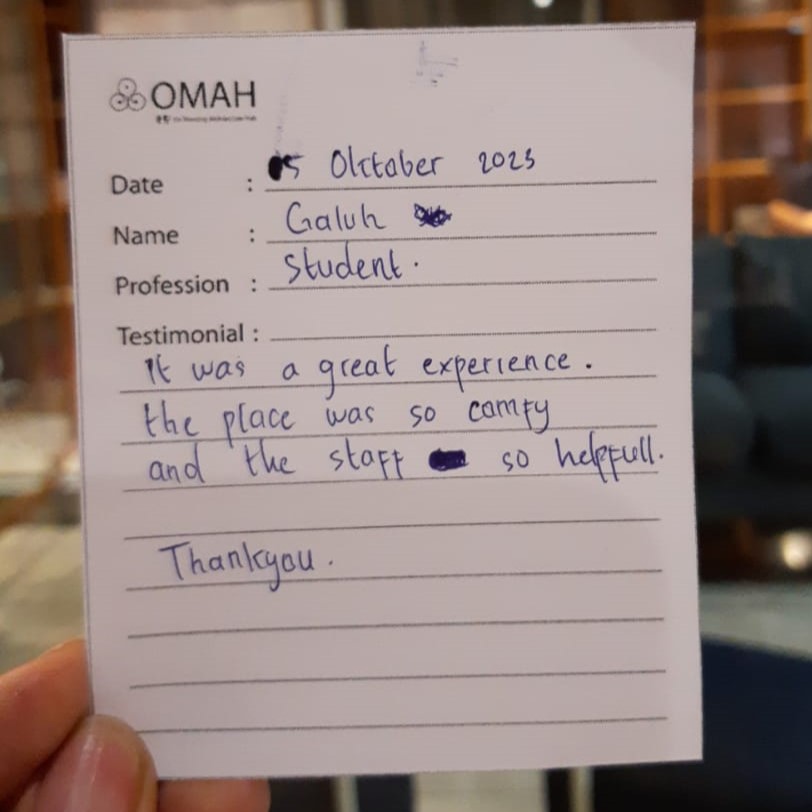 OMAH
Date : 5 Oktober 2023
Name : Galuh
Profession : Student.
Testimonial :
It was a great experience.
the place was so comfy
and the staff so helpfull.
Thankyou.